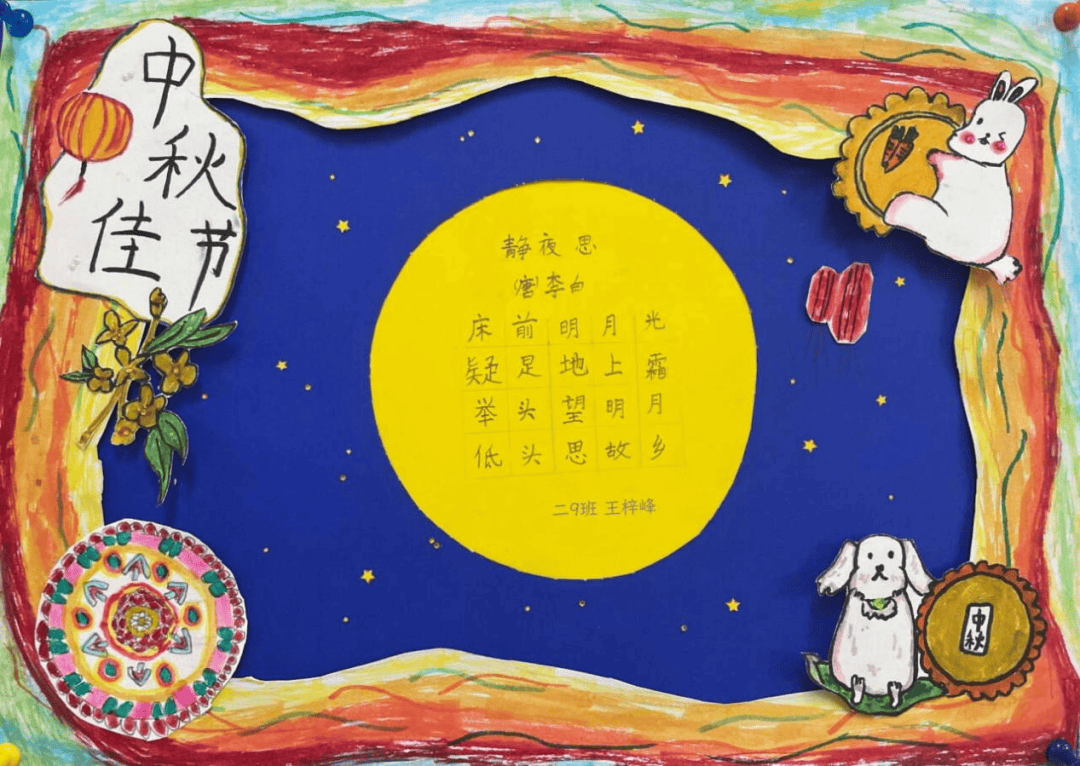 中
秋
佳节
静夜思
唐李白
床前明月光
疑足地上霜
举头望明月
低头思故乡
二9班 王梓峰
中秋